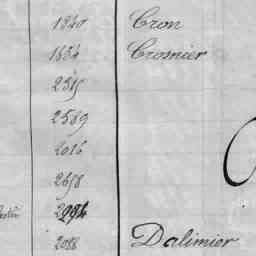 1840 Cron
1684 Crosnier
2315
2589
2016
2658
2994
2088 Dalimier